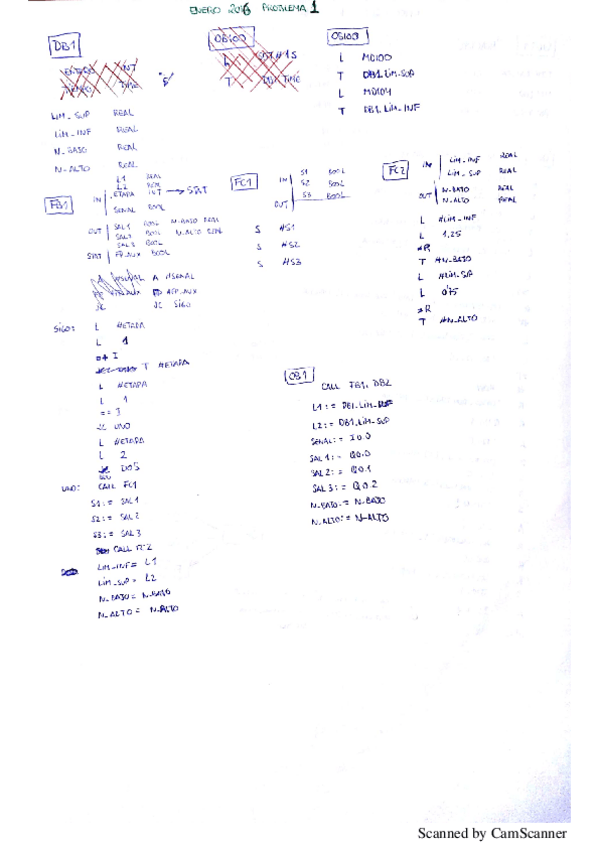 ENERO 2016 PROBLEMA 1
DB1
LIM_SUP REAL
LIM_INF REAL
N_BAJO REAL
N_ALTO REAL
OB100
L MD100
T DB1.LIM_SUP
L MD104
T DB1.LIM_INF
FB1
L1 REAL
L2 REAL
IN ETAPA INT → STAT
SEÑAL BOOL
OUT SAL1 BOOL N_BAJO REAL
SAL2 BOOL N_ALTO REAL
SAL3 BOOL
STAT FP_AUX BOOL
A #SEÑAL
FP #FP_AUX
JC SIGO
SIGO: L #ETAPA
L 1
+ I
T #ETAPA
L #ETAPA
L 1
== I
JC UNO
L #ETAPA
L 2
DOS
UNO: CALL FC1
S1:= SAL1
S2:= SAL2
S3:= SAL3
CALL FC2
LIM_INF= L1
LIM_SUP= L2
N_BAJO= N_BAJO
N_ALTO= N_ALTO
FC1
IN S1 BOOL
S2 BOOL
S3 BOOL
OUT
S #S1
S #S2
S #S3
FC2
IN LIM_INF REAL
LIM_SUP REAL
OUT N_BAJO REAL
N_ALTO REAL
L #LIM_INF
L 1,25
*R
T #N_BAJO
L #LIM_SUP
L 0'75
*R
T #N_ALTO
OB1
CALL FB1, DB2
L1:= DB1.LIM_INF
L2:= DB1.LIM_SUP
SEÑAL:= I0.0
SAL1:= Q0.0
SAL2:= Q0.1
SAL3:= Q0.2
N_BAJO:= N_BAJO
N_ALTO:= N_ALTO
Scanned by CamScanner